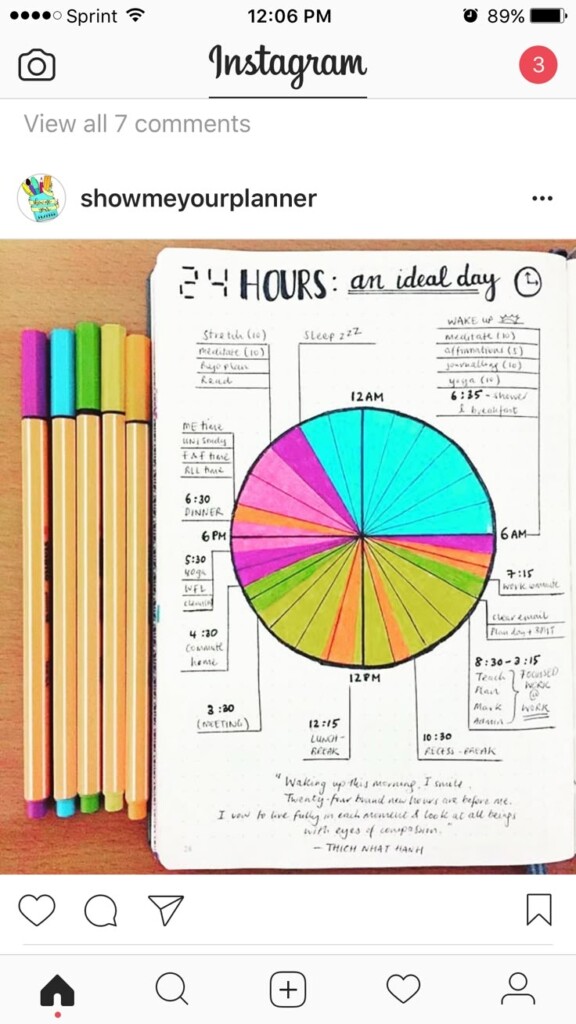 Sprint 12:06 PM 89%
Instagram
3
View all 7 comments
showmeyourplanner
24 HOURS: an ideal day
Stretch (10)
meditate (10)
Read
Sleep zzz
WAKE UP
meditate (10)
affirmations (5)
journalling (10)
yoga (10)
6:35 - shower
& breakfast
12AM
ME time
UNI study
F&F time
6:30
DINNER
6PM
6AM
5:30
yoga
WFL
cleaning
7:15
work commute
clear email
4:30
Commute
home
8:30-3:15
Teach
Plan
Mark
Admin
FOCUSED
WORK
@
WORK
12PM
3:30
(MEETING)
12:15
LUNCH-
BREAK
10:30
RECESS-BREAK
"Waking up this morning, I smile.
Twenty-four brand new hours are before me.
I vow to live fully in each moment & look at all beings
with eyes of compassion."
- THICH NHAT HANH